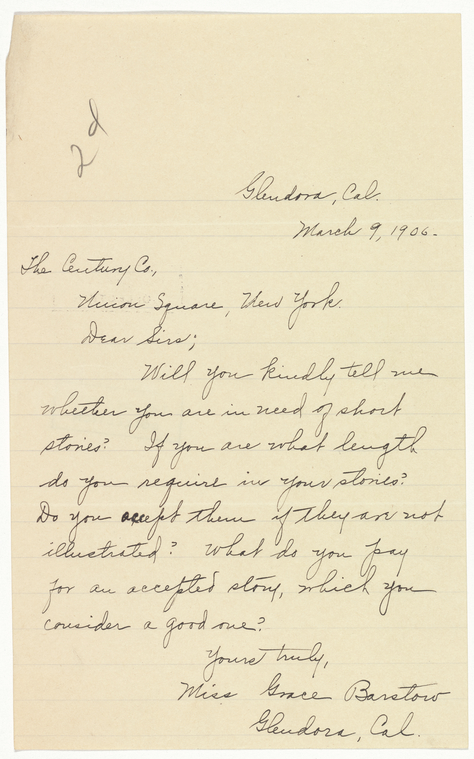 2d
Glendora, Cal.
March 9, 1906.
The Century Co.,
Union Square, New York.
Dear Sirs;
Will you kindly tell me
whether you are in need of short
stories? If you are what length
do you require in your stories?
Do you accept them if they are not
illustrated? What do you pay
for an accepted story, which you
consider a good one?
Yours truly,
Miss Grace Barstow
Glendora, Cal.